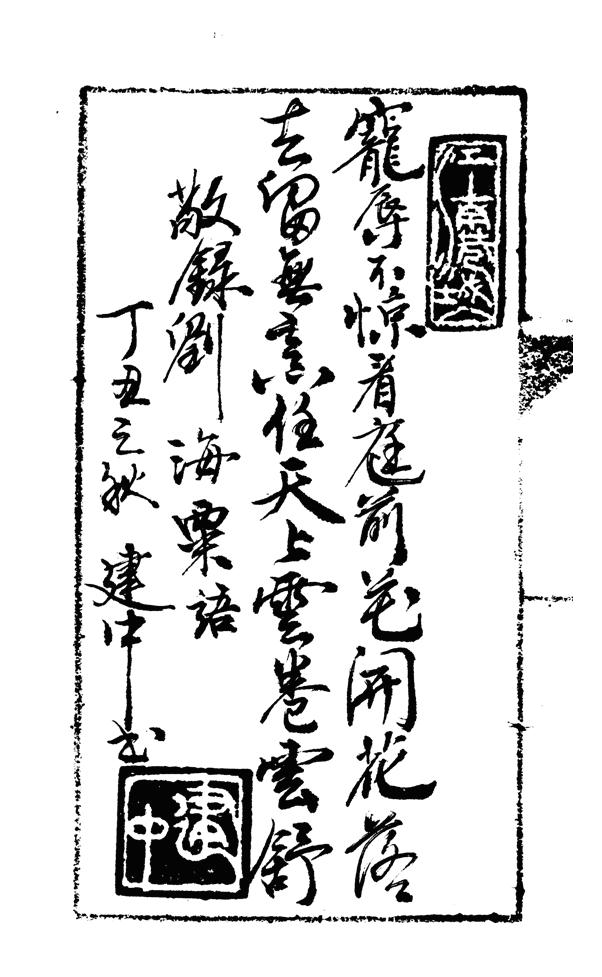 寵辱不惊看庭前花開花落
去留無意任天上雲卷雲舒
敬錄劉海粟語
丁丑之秋 建中书
建中